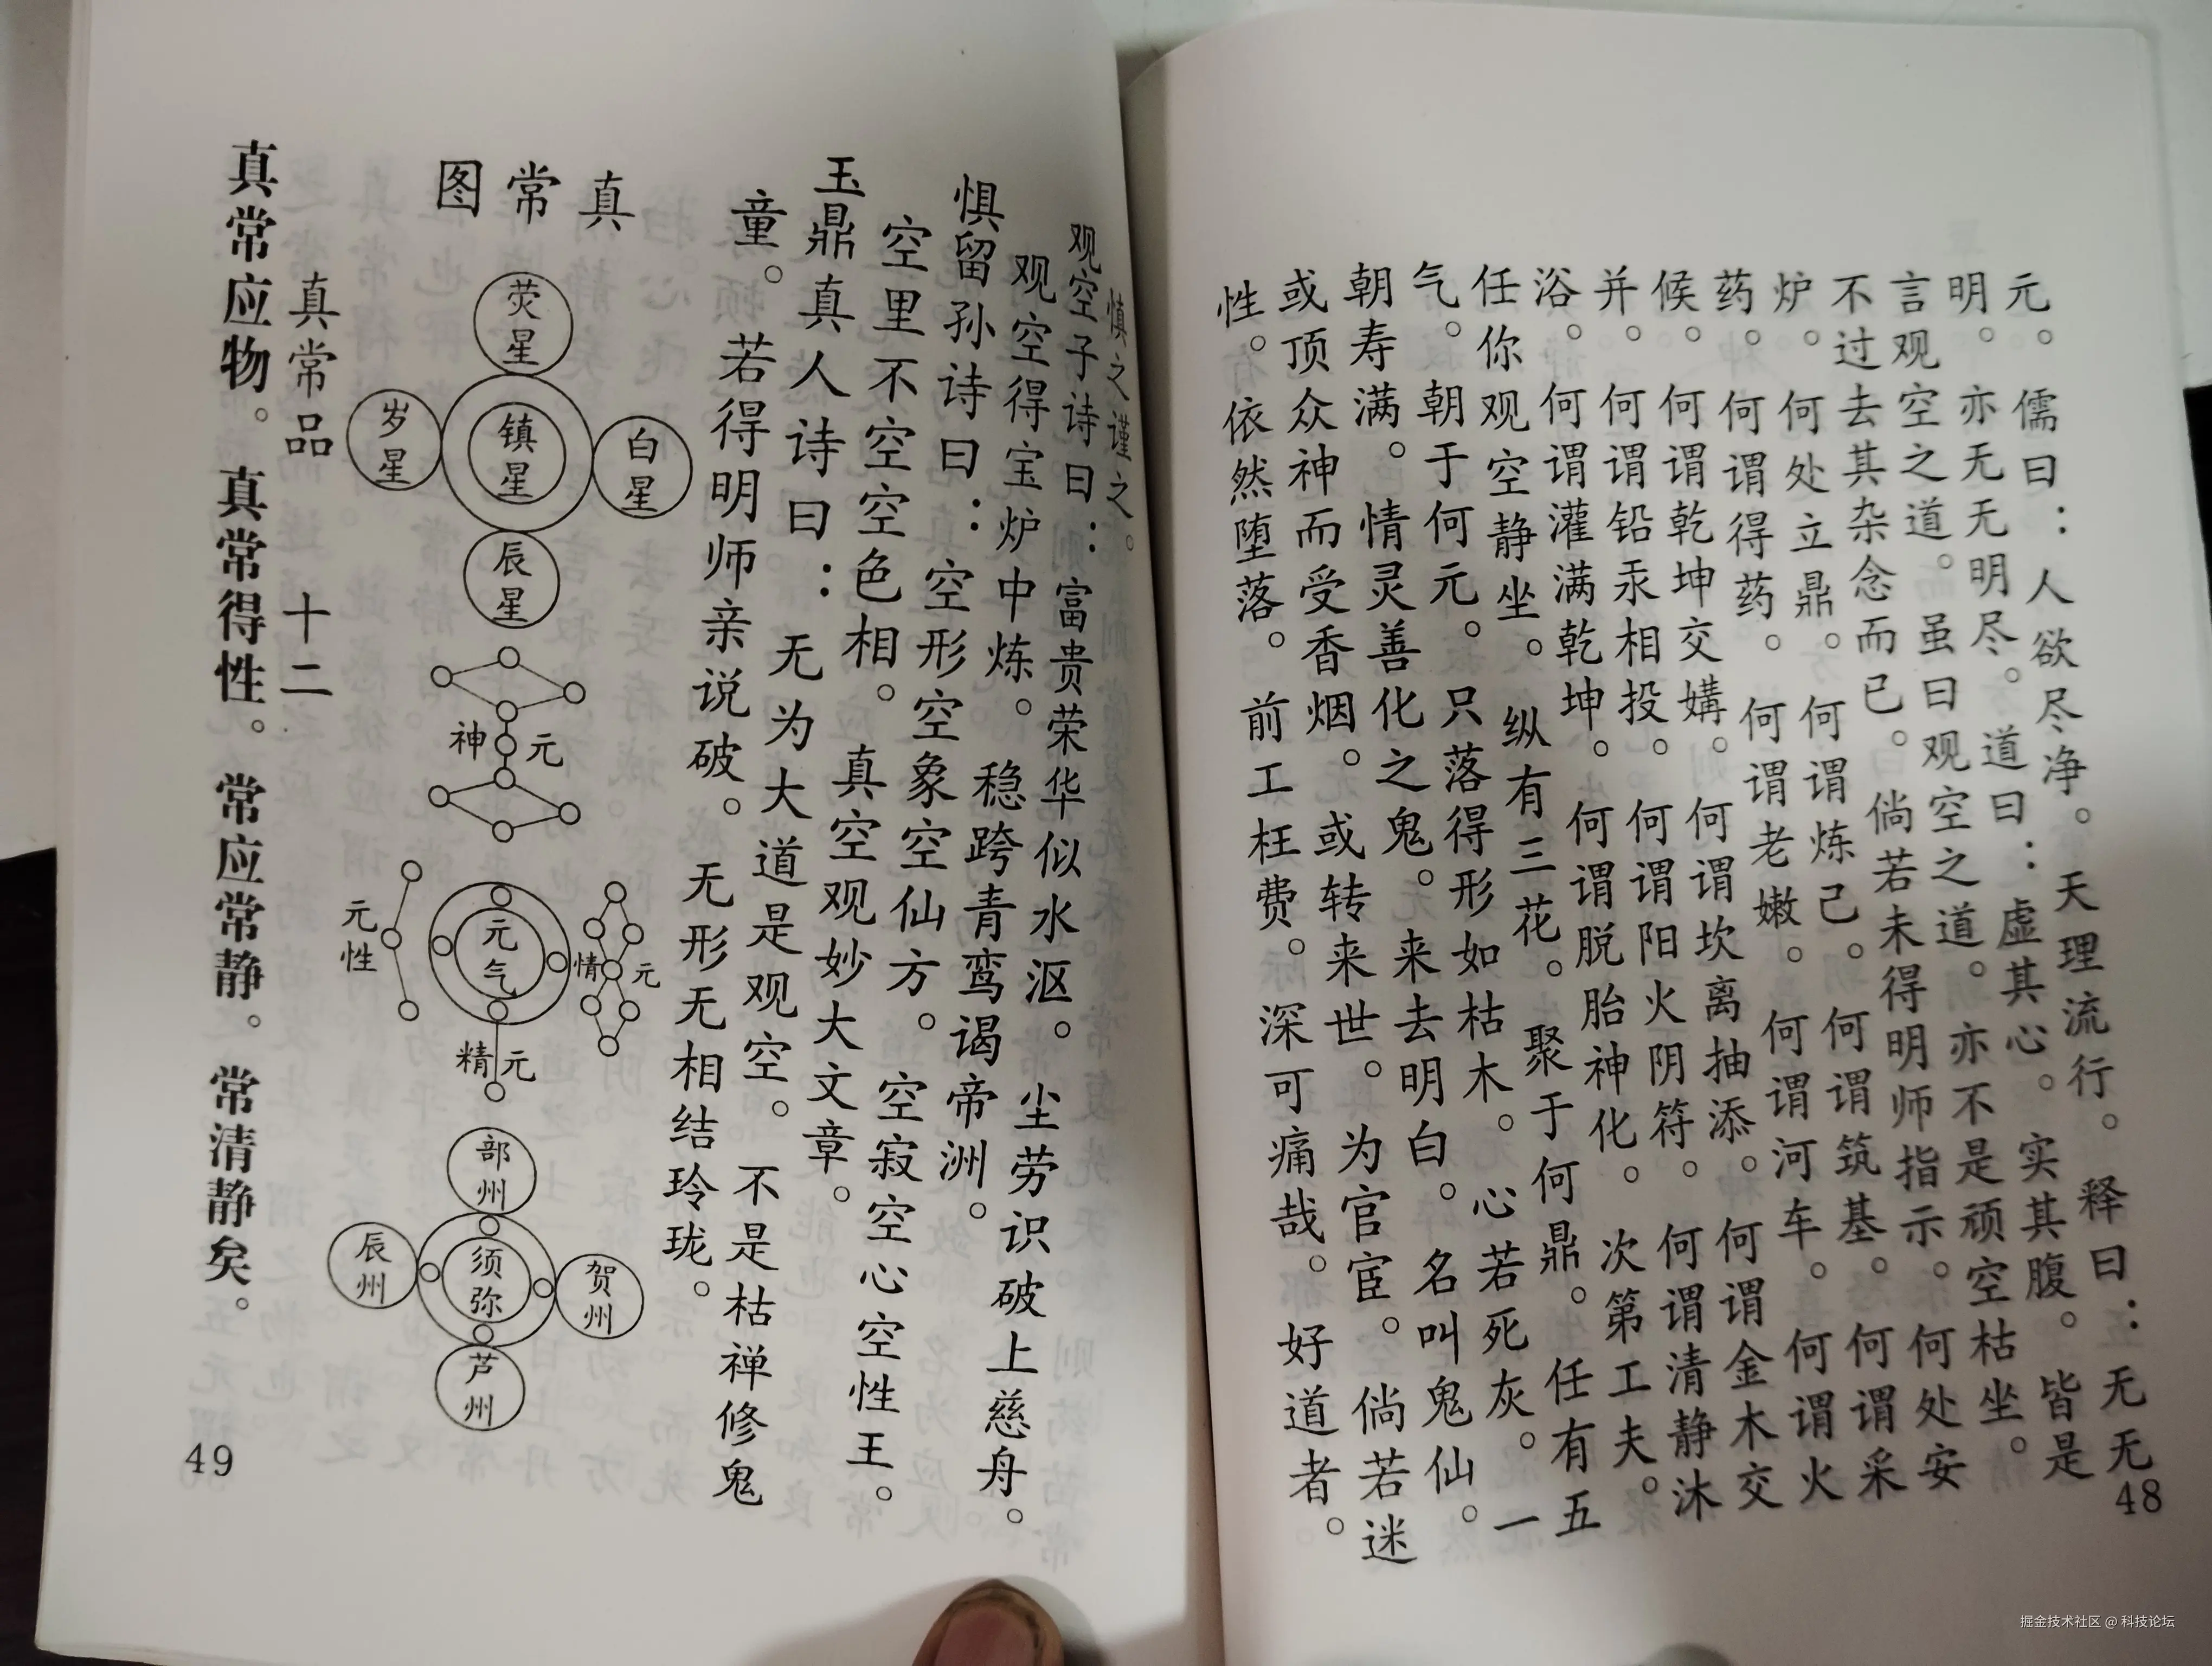 元。儒曰：人欲尽净。天理流行。释曰：无无
明。亦无无明尽。道曰：虚其心。实其腹。皆是
言观空之道。虽曰观空之道。亦不是顽空枯坐。
不过去其杂念而已。倘若未得明师指示。何处安
炉。何处立鼎。何谓炼己。何谓筑基。何谓采
药。何谓得药。何谓老嫩。何谓河车。何谓火
候。何谓乾坤交媾。何谓坎离抽添。何谓金木交
并。何谓铅汞相投。何谓阳火阴符。何谓清静沐
浴。何谓灌满乾坤。何谓脱胎神化。次第工夫。
任你观空静坐。纵有三花。聚于何鼎。任有五
气。朝于何元。只落得形如枯木。心若死灰。一
朝寿满。情灵善化之鬼。来去明白。名叫鬼仙。
或顶众神而受香烟。或转来世。为官宦。倘若迷
性。依然堕落。前工枉费。深可痛哉。好道者。
48
慎之谨之。
观空子诗曰：富贵荣华似水沤。尘劳识破上慈舟。
观空得宝炉中炼。稳跨青鸾谒帝洲。
惧留孙诗曰：空形空象空仙方。空寂空心空性王。
空里不空空色相。真空观妙大文章。
玉鼎真人诗曰：无为大道是观空。不是枯禅修鬼
童。若得明师亲说破。无形无相结玲珑。
真常图
荧星
岁星
镇星
白星
辰星
元神
元性
元气
元情
元精
部州
辰州
须弥
贺州
芦州
真常品 十二
真常应物。真常得性。常应常静。常清静矣。
49
掘金技术社区 @ 科技论坛